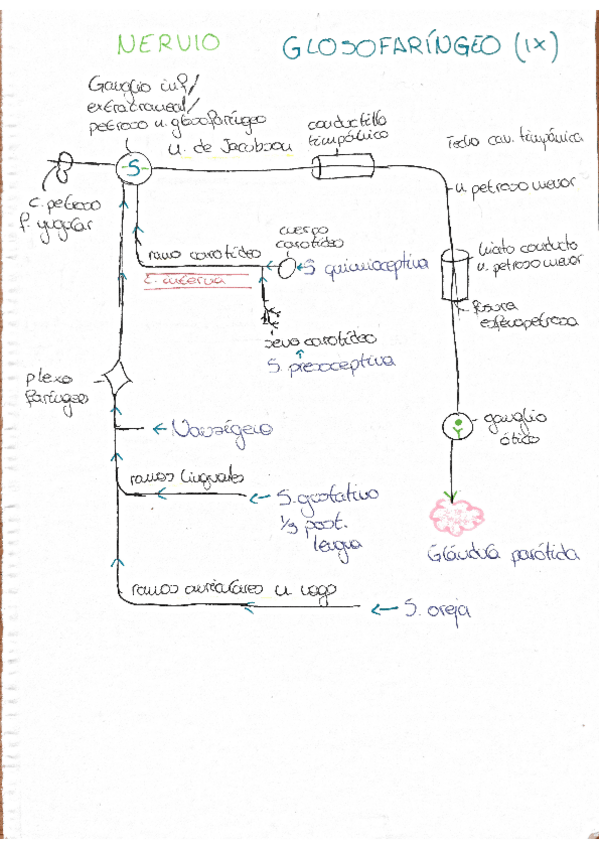 NERVIO GLOSOFARÍNGEO (IX)
Ganglio inf/
extracraneal/
petroso n. glosofaríngeo
n. de Jacobson
conductillo
timpánico
Techo cav. timpánica
S
n. petroso menor
c. petroso
f. yugular
cuerpo
carotídeo
ramo carotídeo
S. quimioceptiva
c. interna
hiato conducto
n. petroso menor
fisura
esfenopetrosa
seno carotídeo
S. presoceptiva
plexo
faríngeo
ganglio
ótico
Nasofaríngeo
ramos linguales
S. gustativo
1/3 post.
lengua
Glándula parótida
ramos auriculares n. vago
S. oreja